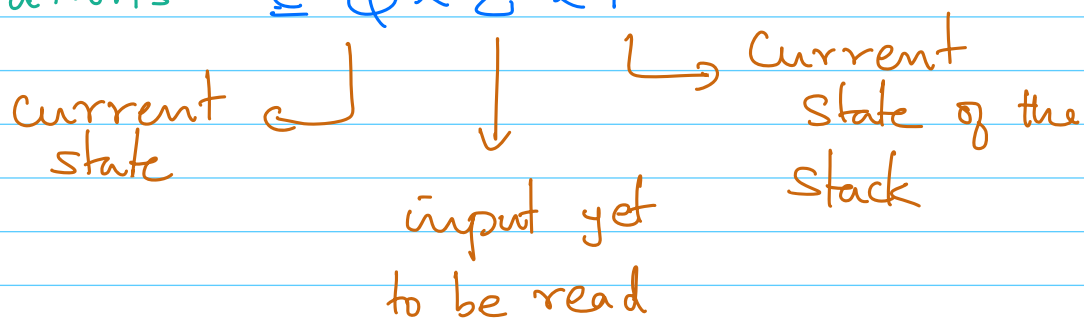 current
state
input yet
to be read
Current
state of the
stack